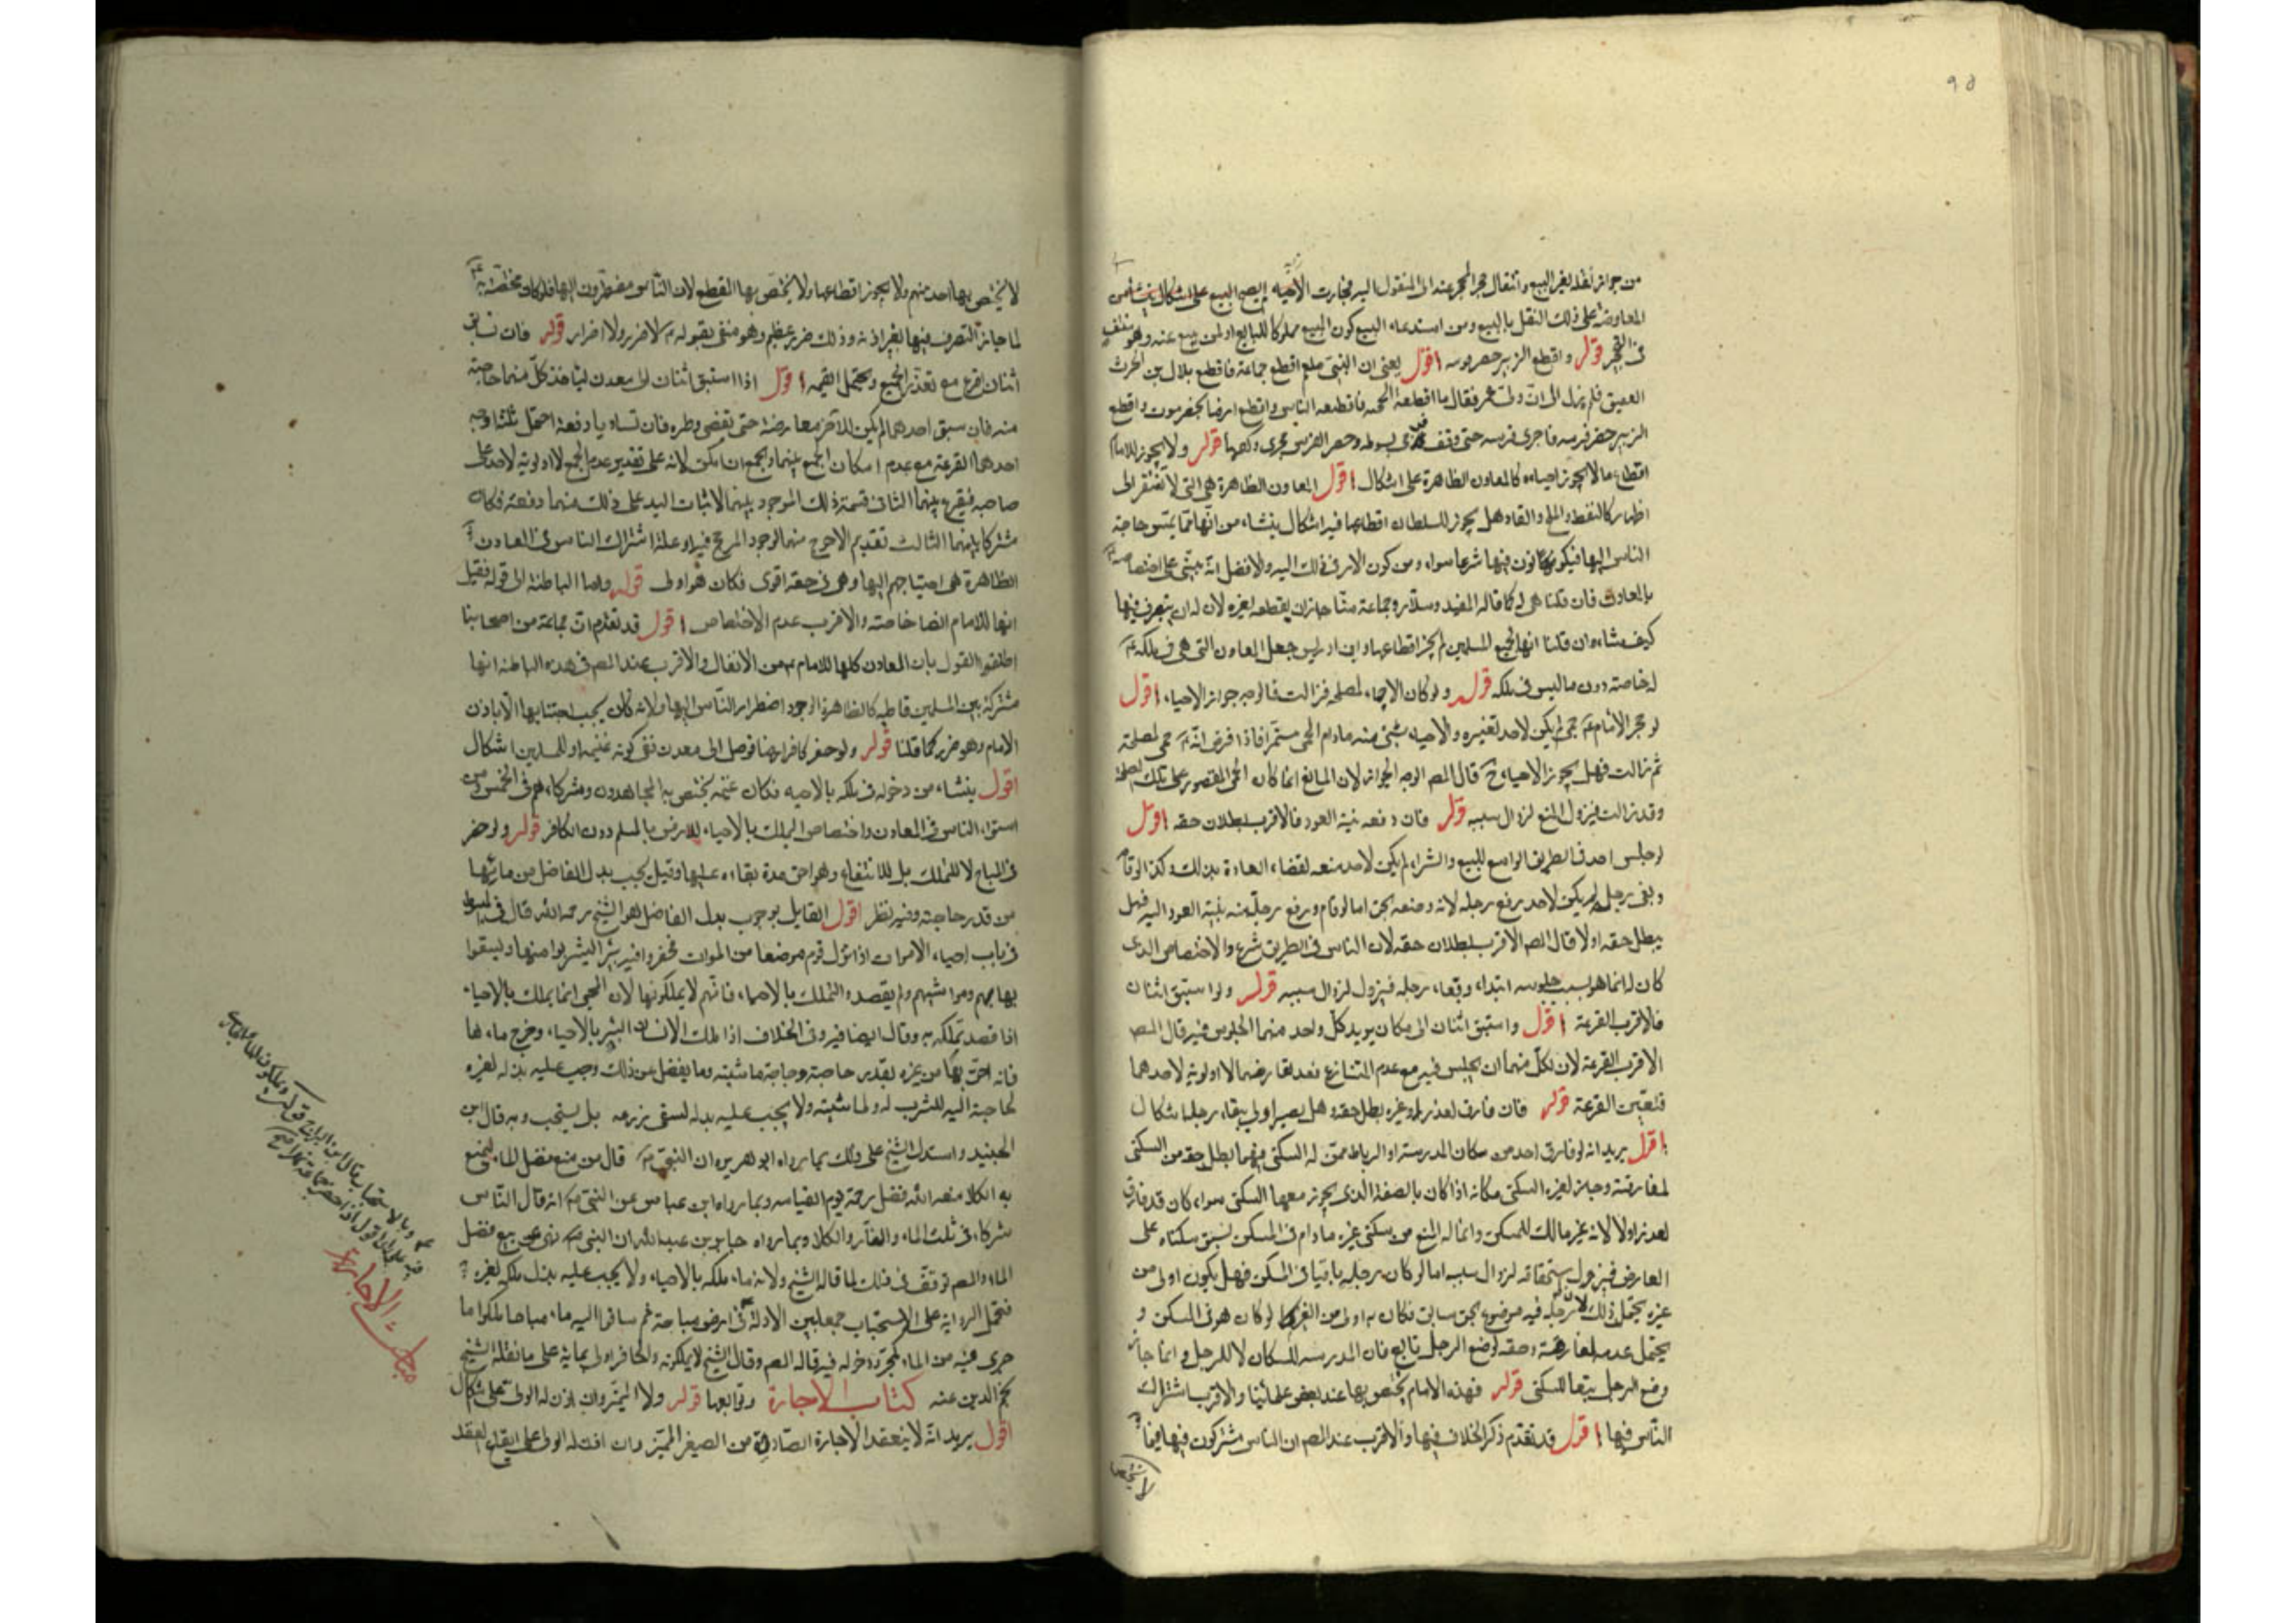 ٩٥
من جواز نقله بغير البيع وانتقال حجر المحجر عنه الى المنقول اليه فجازت الاحياء ايصح البيع على اشكال ينشأ من
المعاوضة على ذلك النقل بالبيع ومن استدعاء البيع كون المبيع مملوكا للبايع اولمن يبيع عنه وهو منتف
فى التحجر قوله واقطع الزبير حضر فرسه اقول يعنى ان النبى صلم اقطع جماعة فاقطع بلال بن الحرث
العقيق فلم يزل الى ان ولى عمر فقال ما اقطعه لتحجبه فاقطعه الناس واقطع ارضا بحضرموت واقطع
الزبير حضر فرسه فاجرى فرسه حتى وقف فرمى بسوطه وحضر الفرس مجرى ركضها قوله ولا يجوز للامام
اقطاع ما لا يجوز احياءه كالمعادن الظاهرة على اشكال اقول المعادن الظاهرة هى التى لا تفتقر الى
اظهار كالنفط والملح والقار وهل يجوز للسلطان اقطاعها فيه اشكال ينشاء من انها مما يمس حاجة
الناس اليها فيكونون فيها شرعا سواء ومن كون الامر فى ذلك اليه والافضل انه يبنى على اختصاصه
بالمعادن فان قلنا هى له كما قاله المفيد وسلار وجماعة منا جاز ان يقطعه لغيره لان له ان يتصرف فيها
كيف شاء وان قلنا انها لجميع المسلمين لم يجز اقطاعها وابن ادريس جعل المعادن التى هى فى ملكه ع
له خاصة دون ما ليس فى ملكه قوله ولو كان الاحماء لمصلحة فزالت فالوجه جواز الاحياء اقول
لو حجر الامام ع حمى لم يكن لاحد تغييره والاحياء بشئ منه مادام الحمى مستمرا فاذا فرض انه ع حمى لمصلحة
ثم زالت فهل يجوز الاحياء ح قال المص الوجه الجواز لان المانع انما كان الحمى المقصور على تلك المصلحة
وقد زالت فيزول المنع لزوال سببه قوله فان دفعه نية العود فالاقرب بطلان حقه اقول
لو جلس احد فى الطريق الواسع للبيع والشراء لم يكن لاحد منعه لقضاء العادة بذلك وكذا لو قام
وبقى رحله لم يكن لاحد رفع رحله لانه وضعه بحق اما لو قام ورفع رحله منه بنية العود اليه فهل
يبطل حقه او لا قال المص الاقرب بطلان حقه لان الناس فى الطريق شرع والاختصاص الذى
كان له انما هو بسبب جلوسه ابتداء وبقاء رحله فيزول لزوال سببه قوله ولو استبق اثنان
فالاقرب القرعة اقول واستبق اثنان الى مكان يريد كل واحد منهما الجلوس فيه قال المص
الاقرب القرعة لان لكل منهما ان يجلس فيه مع عدم التنازع فقد تعارضا ولا اولوية لاحدهما
فتعين القرعة قوله فان فارق لعذر او غيره بطل حقه وهل يصير اولى ببقاء رحله اشكال
اقول يريد انه لو فارق احد من سكان المدرسة او الرباط ممن له السكنى فيهما بطل حقه من السكنى
لمفارقته وجاز لغيره السكنى مكانه اذا كان بالصفة الذى يجوز معها السكنى سواء كان قد فارق
لعذر او لا لانه غير مالك للمسكن وانما له المنع من سكنى غيره مادام فى المسكن لسبق سكناه على
العارض فيزول استحقاقه لزوال سببه اما لو كان رحله باقيا فى المسكن فهل يكون اولى من
غيره يحتمل ذلك لان رحله فيه موضوع بحق سابق فكان به اولى من الغير كما لو كان هو فى المسكن و
يحتمل عدمه لمفارقته وحقه لوضع الرحل تابع فان المدرسة للسكان لا للرحل وانما جاز
وضع الرحل تبعا للسكنى قوله فهذه الامام يختص بها عند بعض علمائنا والاقرب اشتراك
الناس فيها اقول قد تقدم ذكر الخلاف فيها والاقرب عند المص ان الناس مشتركون فيها فيما
لا يختص
لا يختص بها احد منهم ولا يجوز اقطاعها ولا يختص بها المقطع لان الناس مضطرون اليها فلو كان مختصة به
لما جاز التصرف فيها بغير اذنه وذلك ضرر عظيم وهو منفى بقوله ع لا ضرر ولا اضرار قوله فان تسابق
اثنان اقرع مع تعذر الجمع ويحتمل القسمة اقول اذا استبق اثنان الى معدن لياخذ كل منهما حاجته
منه فان سبق احدهما لم يكن للآخر معارضة حتى تقضى وطره فان تساويا دفعة احتمل ثلثة اوجه
احدها القرعة مع عدم امكان الجمع بينهما والجمع ان امكن لانه على تقدير عدم الجمع لا اولوية لاحد على
صاحبه فيقرع بينهما الثانى قسمة ذلك الموجود بينهما لاثبات اليد على ذلك منهما دفعة فكان
مشتركا بينهما الثالث تقديم الاحوج منهما لوجود المرجح فيه او علة اشتراك الناس فى المعادن
الظاهرة هى احتياجهم اليها وهى فى حقه اقوى فكان هو اولى قوله واما الباطنة الى قوله فقيل
انها للامام ايضا خاصة والاقرب عدم الاختصاص اقول قد تقدم ان جماعة من اصحابنا
اطلقوا القول بان المعادن كلها للامام ع من الانفال والاقرب عند المص فى هذه الباطنة انها
مشتركة بين المسلمين قاطبة كالظاهرة لوجود اضطرار الناس اليها ولانه كان يجب اجتنابها الا باذن
الامام وهو ضرر كما قلنا قوله ولو حفر كافر ارضا فوصل الى معدن ففى كونه غنيمة او للمسلمين اشكال
اقول ينشاء من دخوله فى ملكه بالاحياء فكان غنيمة يختص به المجاهدون ومشركاءهم فى الخمس ومن
استواء الناس فى المعادن واختصاص الملك بالاحياء للارض بالمسلم دون الكافر قوله ولو حفر
فى المباح لا للتملك بل للانتفاع وهو احق مدة بقاءه عليها وقيل يجب بذل الفاضل من مائها
من قدر حاجته وفيه نظر اقول القايل بوجوب بذل الفاضل هو الشيخ رحمه الله قال فى المبسوط
فى باب احياء الاموات اذا نزل قوم موضعا من الموات فحفروا فيه بئر اليشربوا منها وليسقوا
بهايمهم ومواشيهم ولم يقصدوا التملك بالاحياء فانهم لا يملكونها لان المحيى انما يملك بالاحياء
اذا قصد تملكه به وقال ايضا فيه وفى الخلاف اذا ملك الانسان البئر بالاحياء وخرج ماء لها
فانه احق بها من غيره بقدر حاجته وحاجة ماشيته وما يفضل عن ذلك وجب عليه بذله لغيره
لحاجته اليه للشرب له ولماشيته ولا يجب عليه بذله لسقى زرعه بل يستحب وبه قال ابن
الجنيد واستدل الشيخ على ذلك بما رواه ابو هريرة ان النبى ص قال من منع فضل الماء ليمنع
به الكلا منعه الله فضل رحمته يوم القيامة وبما رواه ابن عباس عن النبى ص انه قال الناس
شركاء فى ثلث الماء والنار والكلا وبما رواه جابر بن عبد الله ان النبى ص نهى عن بيع فضل
الماء والمص توقف فى ذلك لما قاله الشيخ ولانه ماء ملكه بالاحياء ولا يجب عليه بذل ملكه لغيره
فتحمل الرواية على الاستحباب جمعا بين الادلة فى ارض مباحة ثم ساقوا اليه ماء مباحا ملكوا ما
جرى فيه من الماء بمجرد دخوله فيه قاله المص وقال الشيخ لا يملكونه والحافر اولى بمائه على ما نقله الشيخ
نجم الدين عنه كتاب الاجارة وتوابعها قوله ولا المميز وان اذن له الولى على اشكال
اقول يريد انه لا ينعقد الاجارة الصادرة من الصغير المميز وان اذن له الولى على القول العقد
وبالاستحباب قال ابن البراج قوله ويملكون الماء
قوله اقول اذا حفر جماعة نهرا
مطلب الاجارة